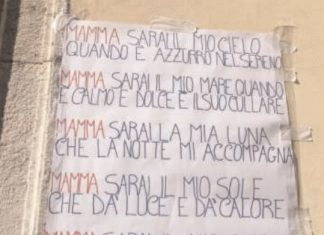 MAMMA SARAI IL MIO CIELO
QUANDO È AZZURRO NEL SERENO
MAMMA SARAI IL MIO MARE QUANDO
È CALMO E DOLCE È IL SUO CULLARE
MAMMA SARAI LA MIA LUNA
CHE LA NOTTE MI ACCOMPAGNA
MAMMA SARAI IL MIO SOLE
CHE DÀ LUCE E DÀ CALORE
MAMMA SARAI IL MIO